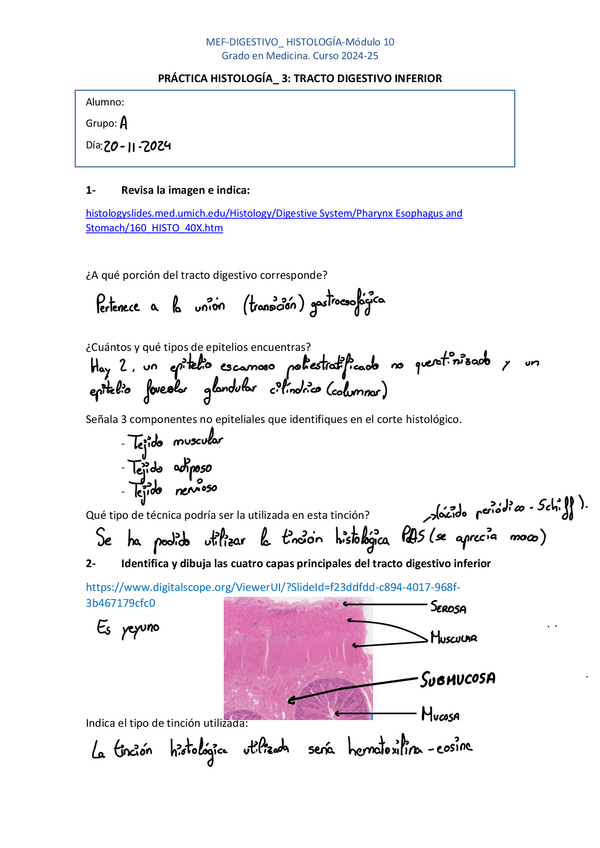 MEF-DIGESTIVO_ HISTOLOGÍA-Módulo 10
Grado en Medicina. Curso 2024-25
PRÁCTICA HISTOLOGÍA_ 3: TRACTO DIGESTIVO INFERIOR
Alumno:
Grupo: A
Día: 20-11-2024
1- Revisa la imagen e indica:
histologyslides.med.umich.edu/Histology/Digestive System/Pharynx Esophagus and
Stomach/160_HISTO_40X.htm
¿A qué porción del tracto digestivo corresponde?
Pertenece a la unión (transición) gastroesofágica
¿Cuántos y qué tipos de epitelios encuentras?
Hay 2, un epitelio escamoso poliestratificado no queratinizado y un
epitelio foveolar glandular cilíndrico (columnar)
Señala 3 componentes no epiteliales que identifiques en el corte histológico.
- Tejido muscular
- Tejido adiposo
- Tejido nervioso
(ácido periódico - Schiff).
Qué tipo de técnica podría ser la utilizada en esta tinción?
Se ha podido utilizar la tinción histológica PAS (se aprecia moco)
2- Identifica y dibuja las cuatro capas principales del tracto digestivo inferior
https://www.digitalscope.org/ViewerUI/?SlideId=f23ddfdd-c894-4017-968f-
3b467179cfc0
SEROSA
Es yeyuno
MUSCULAR
SUBMUCOSA
MUCOSA
Indica el tipo de tinción utilizada:
La tinción histológica utilizada sería hematoxilina-eosina